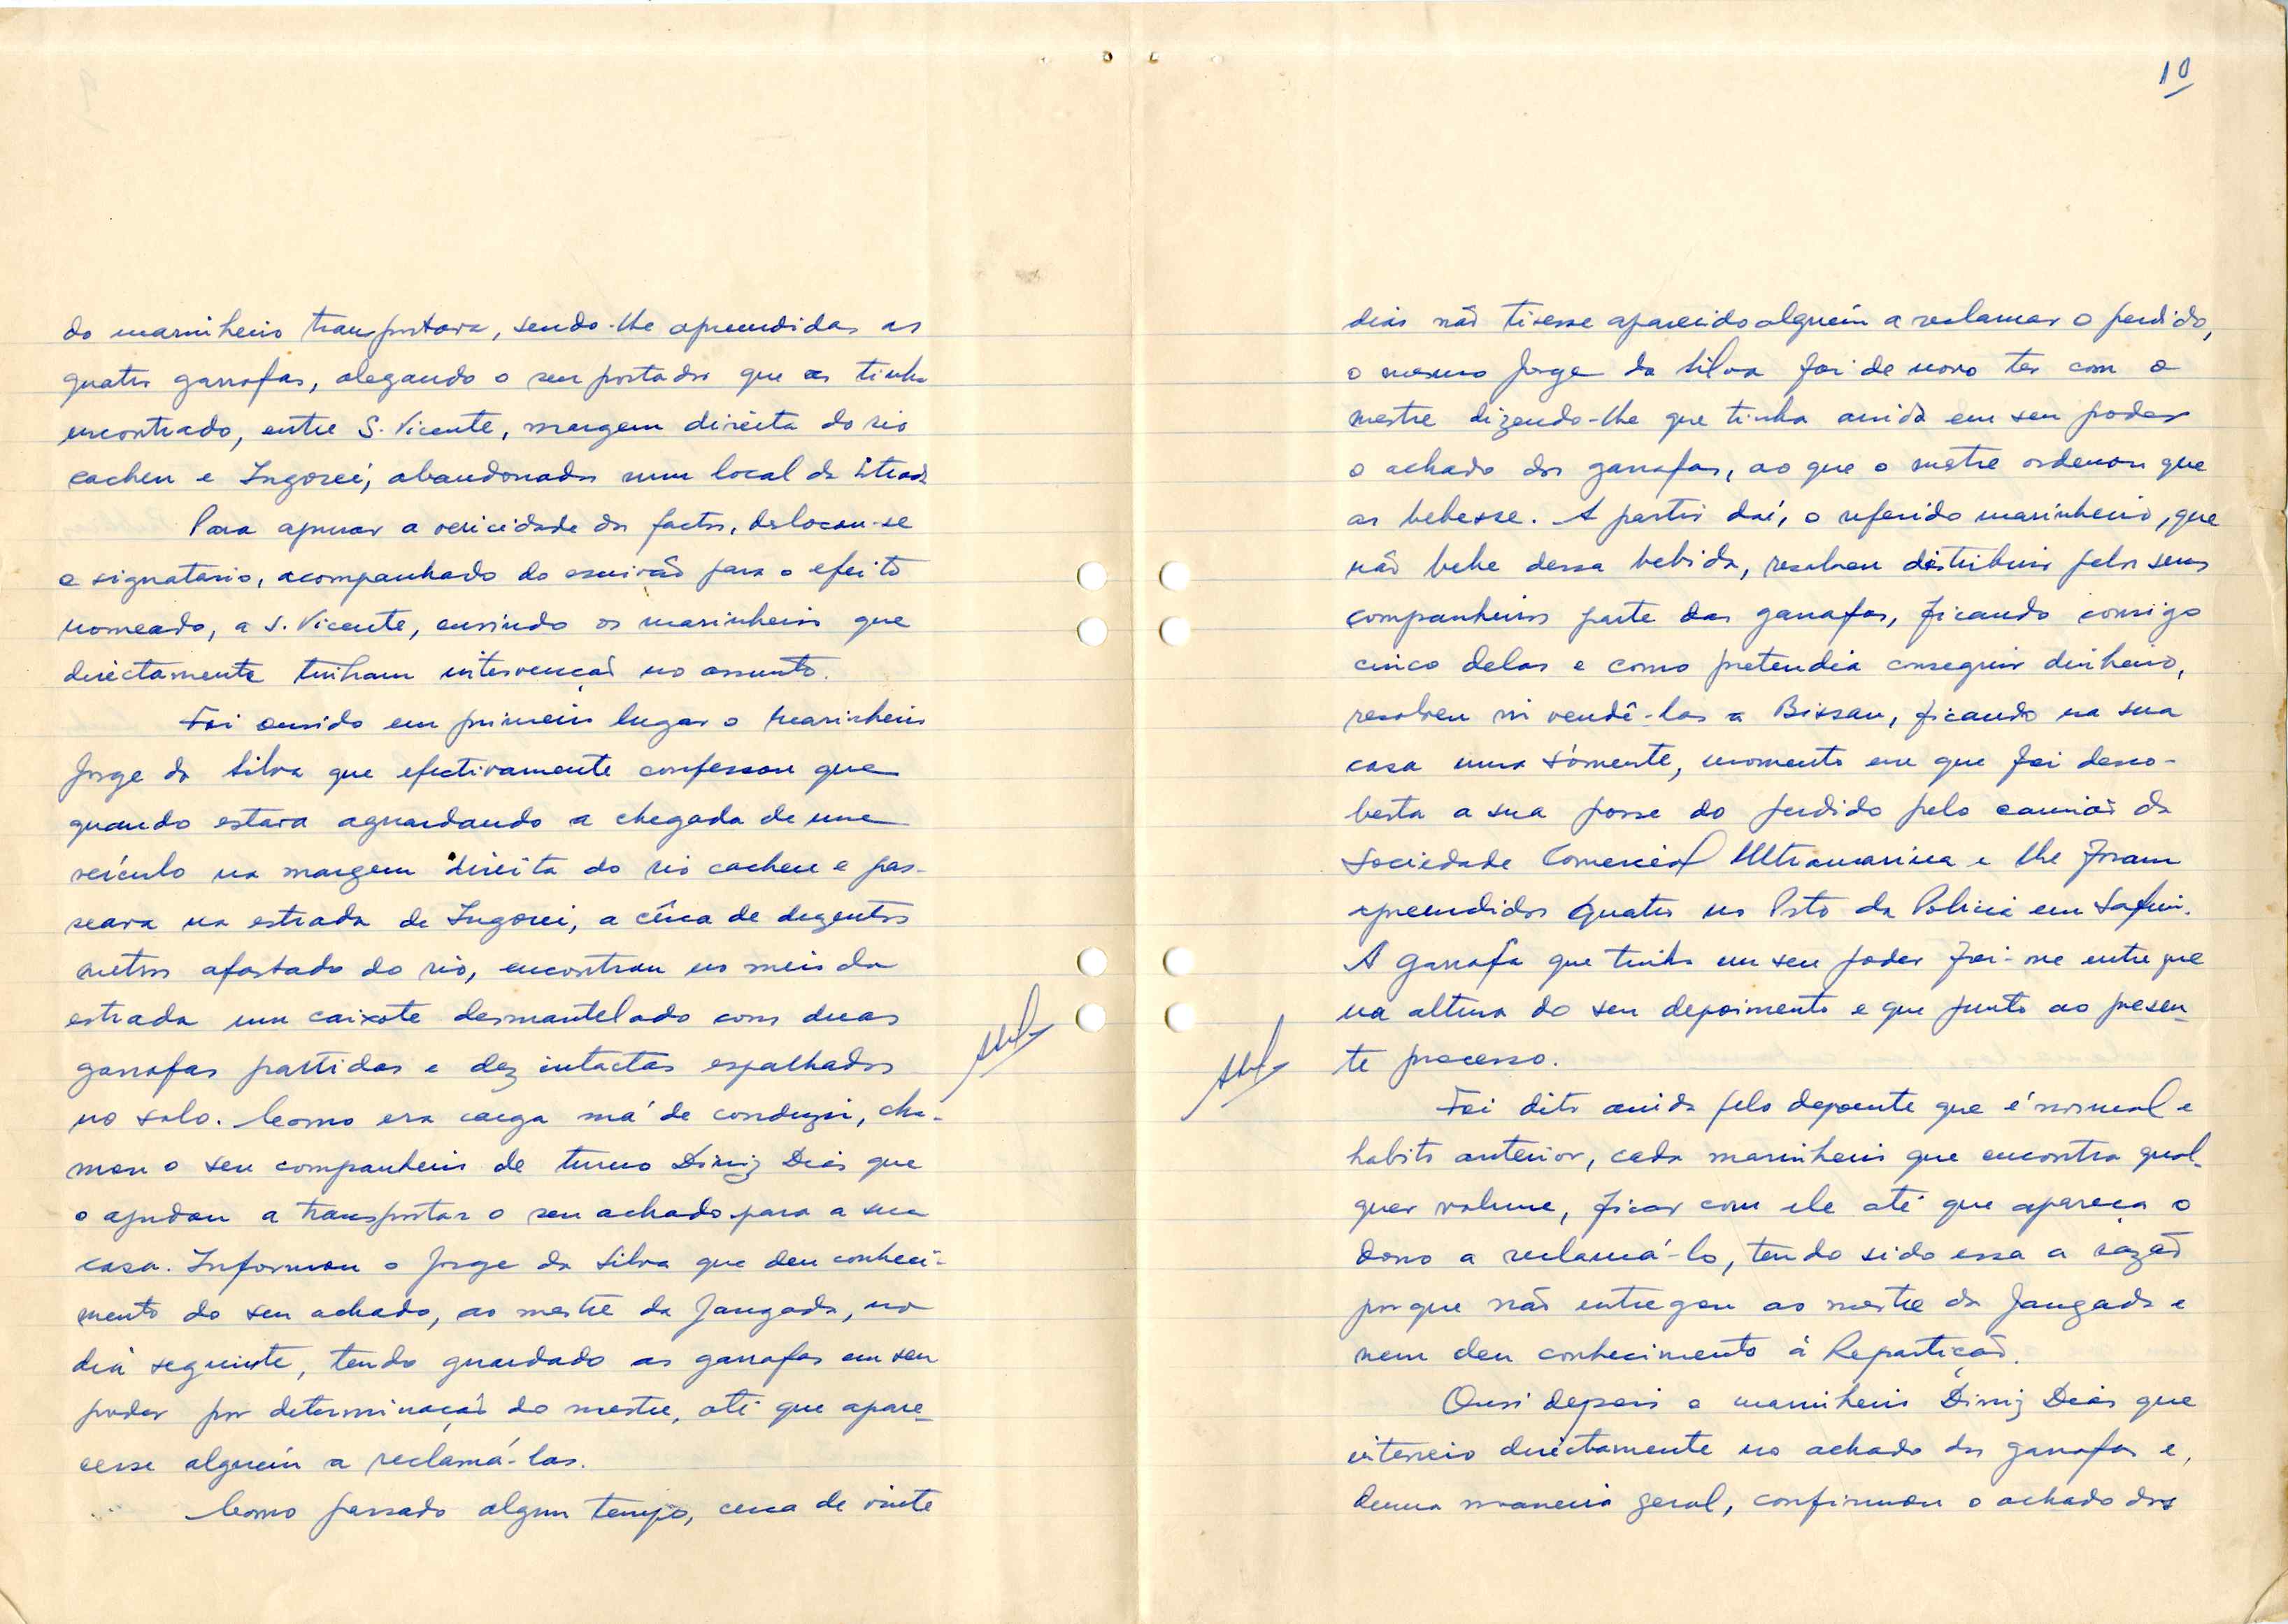 do marinheiro transportava, sendo-lhe apreendidas as
quatro garrafas, alegando o seu portador que as tinha
encontrado, entre S. Vicente, margem direita do rio
cacheu e Ingorei, abandonadas num local da estrada
Para apurar a vericidade dos factos, deslocou-se
o signatário, acompanhado do escrivão para o efeito
nomeado, a S. Vicente, ouvindo os marinheiros que
directamente tinham intervenção no assunto.
Foi ouvido em primeiro lugar o marinheiro
Jorge da Silva que efectivamente confessou que
quando estava aguardando a chegada de um
veículo na margem direita do rio cacheu e pas-
seava na estrada de Ingorei, a cêrca de duzentos
metros afastado do rio, encontrou no meio da
estrada um caixote desmantelado com duas
garrafas partidas e dez intactas espalhadas
no solo. Como era carga má de conduzir, cha-
mou o seu companheiro de turno Diniz Dias que
o ajudou a transportar o seu achado para a sua
casa. Informou o Jorge da Silva que deu conheci-
mento do seu achado, ao mestre da Jangada, no
dia seguinte, tendo guardado as garrafas em seu
poder por determinação do mestre, até que apare-
cesse alguém a reclamá-las.
Como passado algum tempo, cerca de vinte
10
dias não tivesse aparecido alguém a reclamar o perdido,
o mesmo Jorge da Silva foi de novo ter com o
mestre dizendo-lhe que tinha ainda em seu poder
o achado das garrafas, ao que o mestre ordenou que
as bebesse. A partir daí, o referido marinheiro, que
não bebe dessa bebida, resolveu distribuir pelos seus
companheiros parte das garrafas, ficando consigo
cinco delas e como pretendia conseguir dinheiro,
resolveu ir vendê-las a Bissau, ficando na sua
casa uma sómente, momento em que foi desco-
berta a sua posse do perdido pelo camião da
Sociedade Comercial Ultramarina e lhe foram
apreendidas quatro no Posto da Policia em Safim.
A garrafa que tinha em seu poder foi-me entregue
na altura do seu depoimento e que junto ao presen-
te processo.
Foi dito ainda pelo depoente que é normal e
habito anterior, cada marinheiro que encontra qual-
quer volume, ficar com ele até que apareça o
dono a reclamá-lo, tendo sido essa a razão
porque não entregou ao mestre da Jangada e
nem deu conhecimento à Repartição.
Ouvi depois o marinheiro Diniz Dias que
interveio directamente no achado das garrafas e,
duma maneira geral, confirmou o achado das